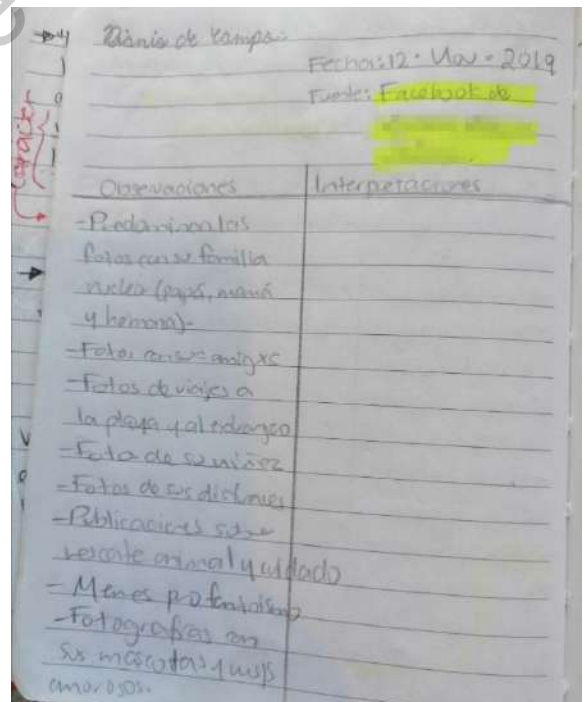 Diario de Campo:
Fecha: 12 - Nov - 2019
Fuente: Facebook de
Observaciones
Interpretaciones
-Predominan las
fotos con su familia
nuclear (papá, mamá
y hermana)-
-Fotos con sus amigxs
-Fotos de viajes a
la playa y al extranjero
-Foto de su niñez
-Fotos de sus disfraces
-Publicaciones sobre
rescate animal y cuidado
-Memes pro feminismo
-Fotografías con
sus mascotas y
amorosos.